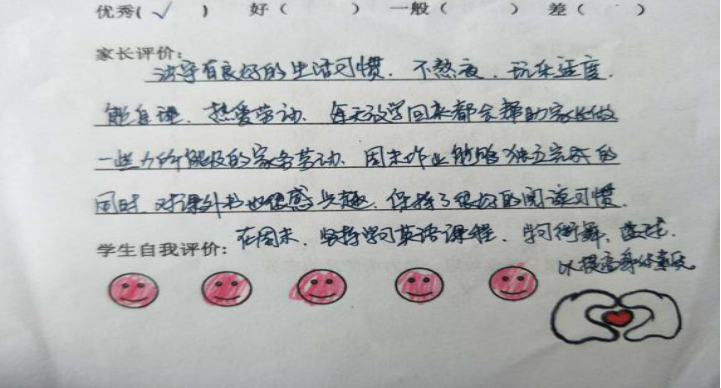 优秀(√) 好( ) 一般( ) 差( )
家长评价:
孩子有良好的生活习惯.不熬夜.玩乐适度.
能自理.热爱劳动.每天放学回来都会帮助家长做
一些力所能及的家务劳动.周末作业能够独立完成的
同时.对课外书也很感兴趣.保持了很好的阅读习惯.
在周末.坚持学习英语课程.学习街舞、
以提高身体素质
学生自我评价: